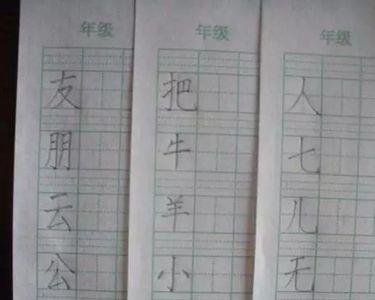 年级 年级 年级
友 把 人
朋 牛 七
云 羊 儿
公 小 无